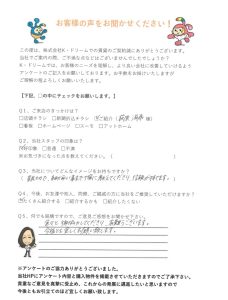 お客様の声をお聞かせください!
この度は、株式会社K・ドリームでの賃貸のご契約誠にありがとうございます。
当社でご案内の際、ご不満な点などはございませんでしたでしょうか?
K・ドリームでは、お客様のニーズを理解し、より良い会社に改善していけるよう
アンケートのご記入をお願いしております。お手数をお掛けいたしますが
ご理解の程よろしくお願いいたします。
【下記、□の中にチェックをお願いします。】
Q1、ご来店のきっかけは?
□店頭チラシ □新聞折込チラシ ご紹介( 様)
□看板 □ホームページ □スーモ □アットホーム
Q2、当社スタッフの印象は?
印象 □普通 □不満
※お気づきになった点を教えてください。( )
Q3、当社についてどんなイメージをお持ちですか?
Q4、今後、お友達や知人、同僚、ご親戚の方に当社をご推薦していただけますか?
たくさん紹介する □紹介するかも □紹介したくない
Q5、何でも結構ですので、ご意見ご感想をお聞かせ下さい。
今後とも宜しくお願い致します。
※アンケートのご協力ありがとうございました。
当社HPにアンケート内容と購入物件を掲載させていただきますのでご了承下さい。
貴重なご意見を真摯に受止め、これからの発展に邁進したいと思いますので
今後ともお引立てのほど宜しくお願い致します。